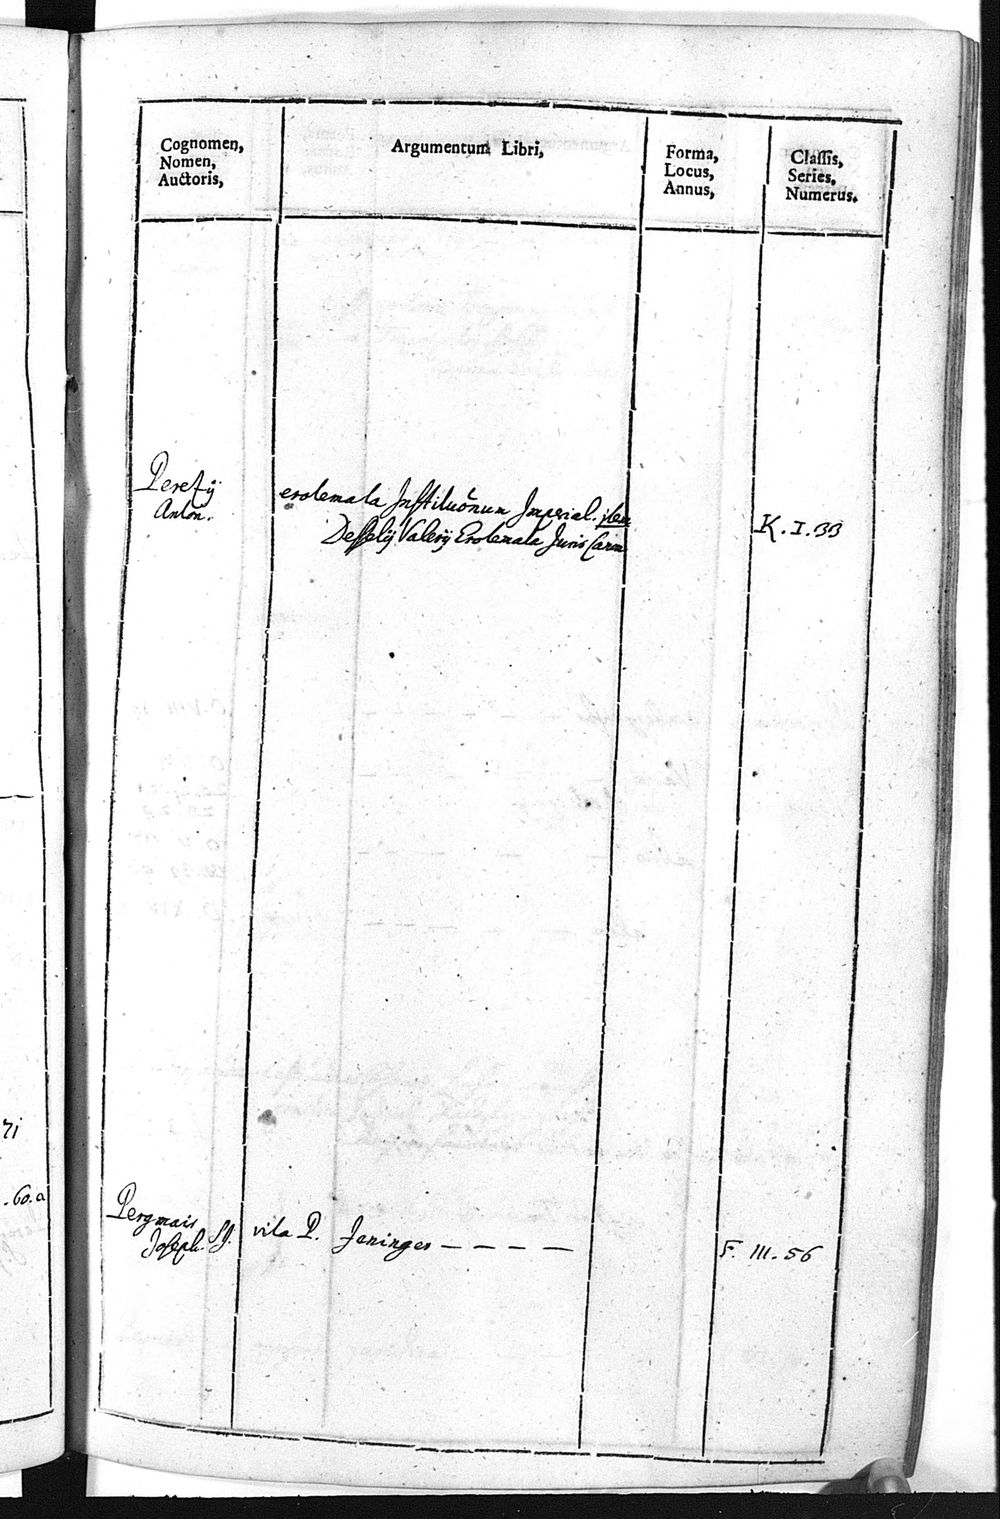 Cognomen,
Nomen,
Auctoris,
Argumentum Libri,
Forma,
Locus,
Annus,
Classis,
Series,
Numerus.
Perezij
Anton.
erotemata Institutõnum Imperial. item
Desselij Valerij Erotemata Juris Canon
K. I. 33
71
. 60. a
Pergmair
Joseph. S.J.
vita P. Jeninger — — — —
F. III. 56